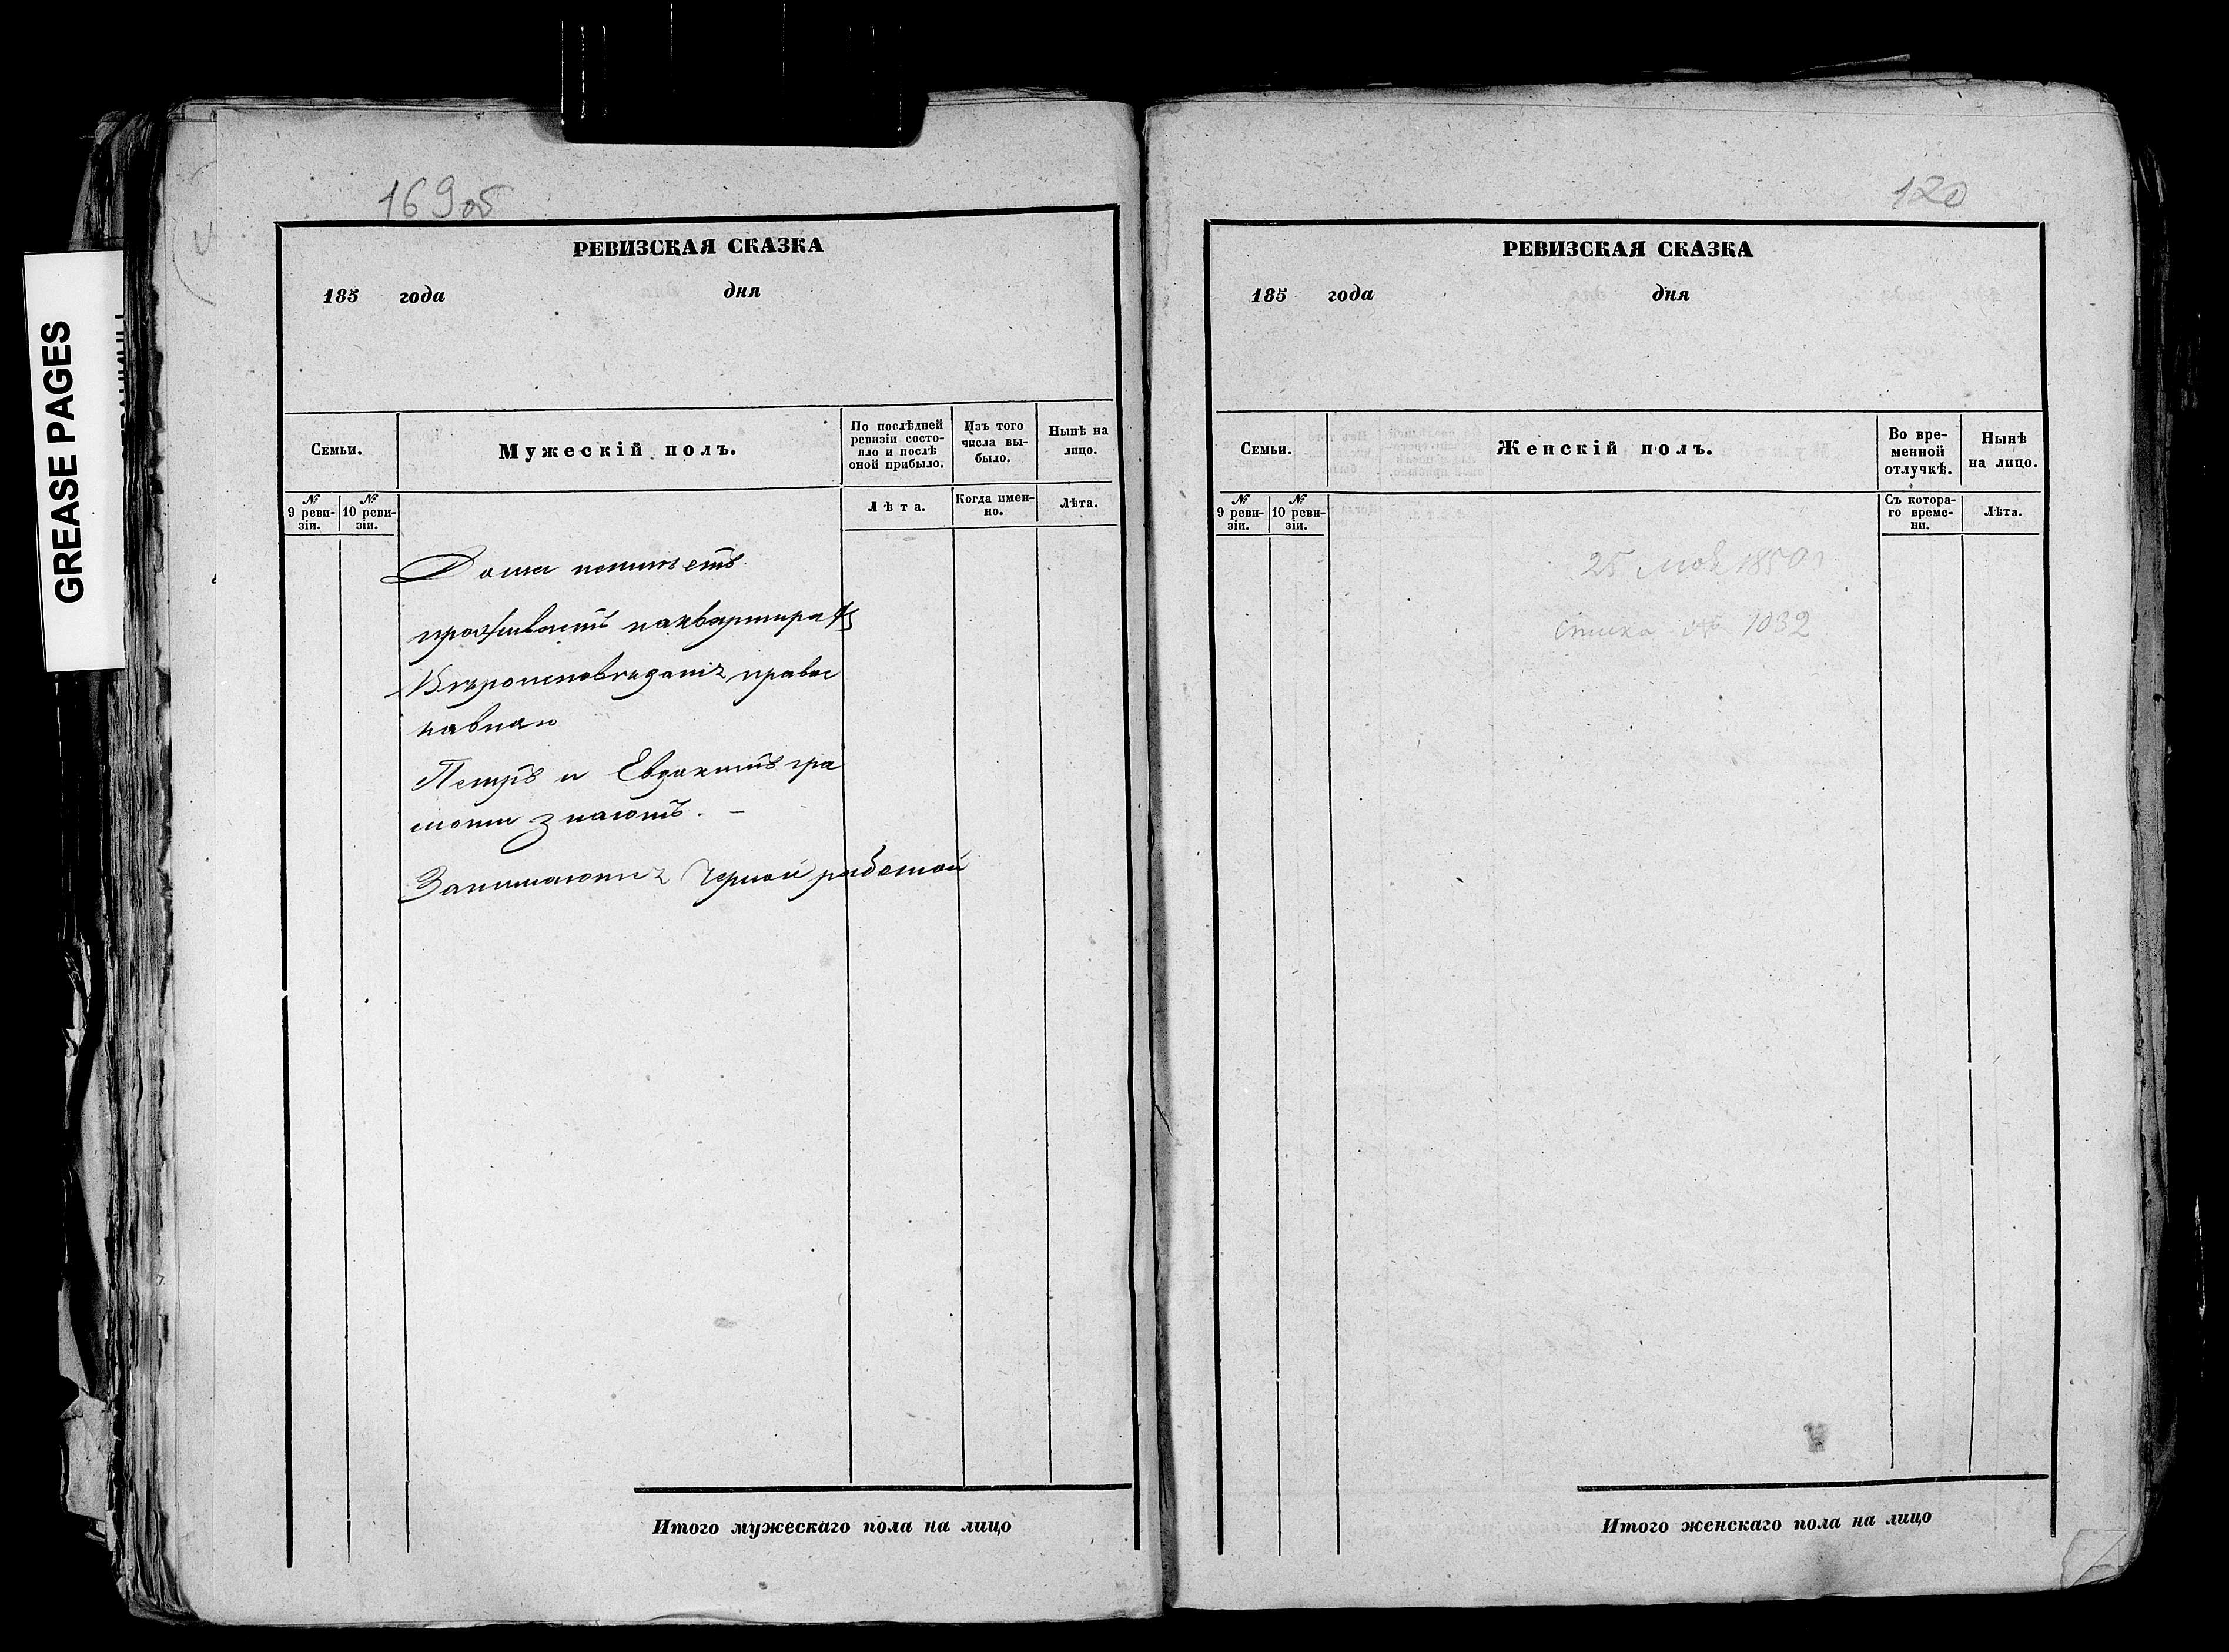 GREASE PAGES
169об
РЕВИЗСКАЯ СКАЗКА
185 года дня
Семьи.
Мужескій полъ.
По послѣдней ревизіи состояло и послѣ оной прибыло.
Изъ того числа выбыло.
Нынѣ на лицо.
№ 9 ревизіи.
№ 10 ревизіи.
Лѣта.
Когда именно.
Лѣта.
Дома неимѣетъ
проживаетъ наквартирахъ
Вѣроисповѣданія правос
лавнаго
Петръ и Евдокимъ гра
моти знаютъ. –
Занимаются Черной работой
Итого мужескаго пола на лицо
120
РЕВИЗСКАЯ СКАЗКА
185 года дня
Семьи.
Женскій полъ.
Во временной отлучкѣ.
Нынѣ на лицо.
№ 9 ревизіи.
№ 10 ревизіи.
Съ котораго времени.
Лѣта.
25 1850г
1032
Итого женскаго пола на лицо